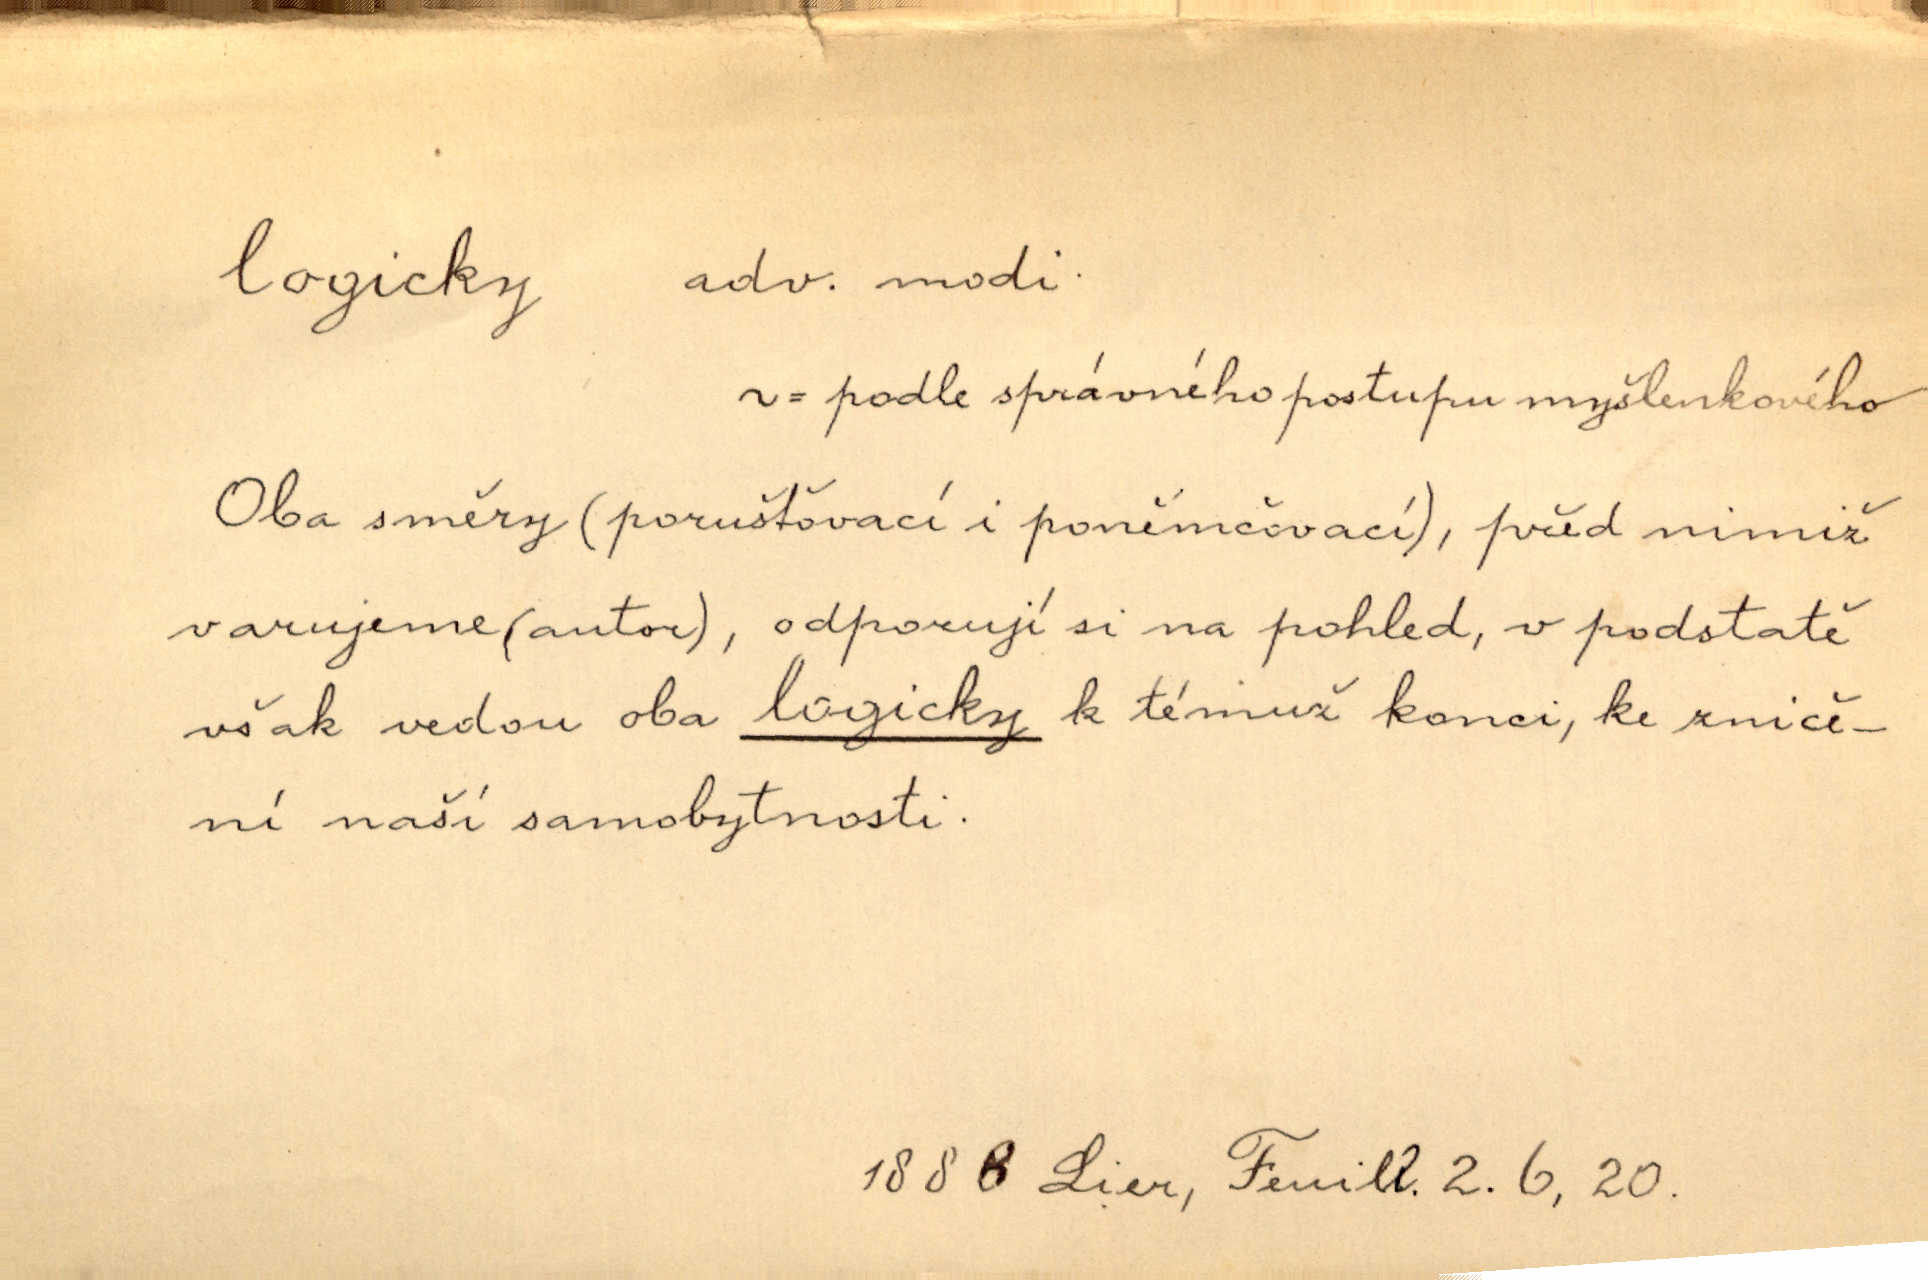 logicky adv. modi.
v = podle správného postupu myšlenkového
Oba směry (poruštóvací i poněmčovací), před nimiž
varujeme (autor), odporují si na pohled, v podstatě
však vedou oba logicky k témuž konci, ke zniče-
ní naší samobytnosti.
1888 Lier, Feuill. 2. 6, 20.